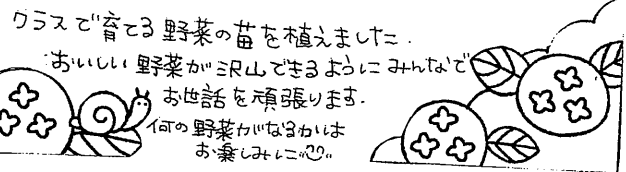 クラスで育てる野菜の苗を植えました.
おいしい野菜が沢山できるようにみんなで
お世話を頑張ります.
何の野菜がなるかは
お楽しみに